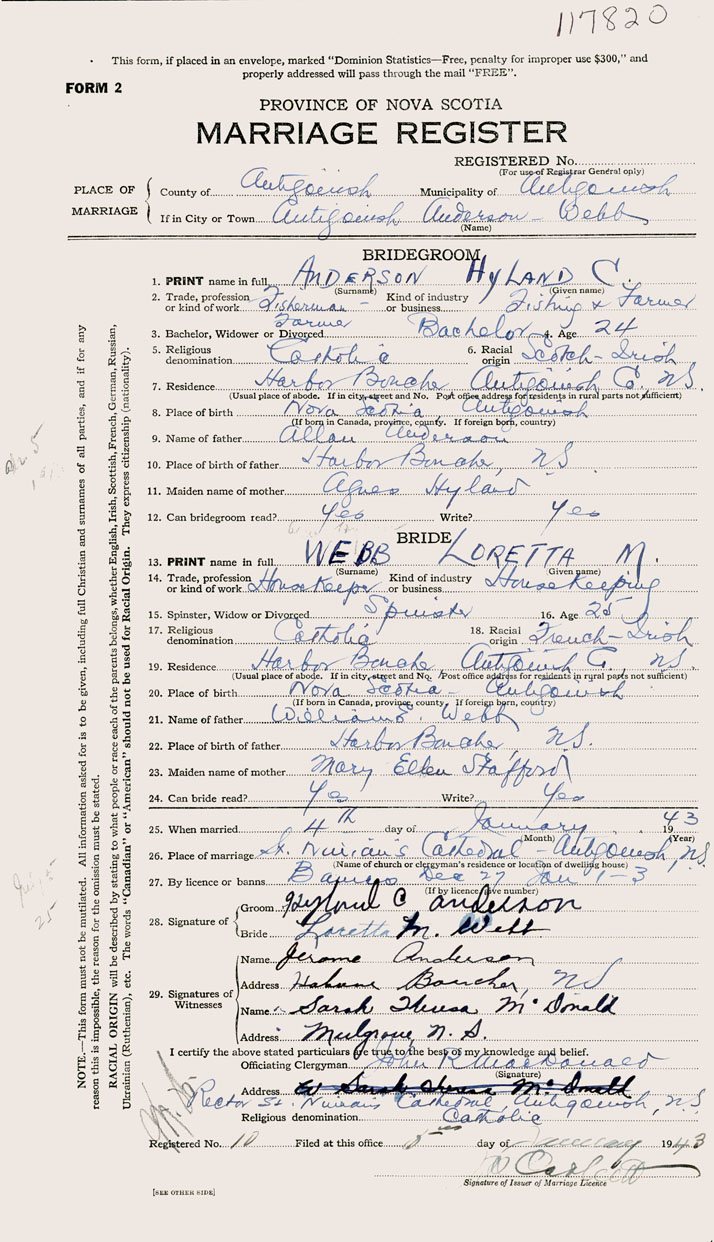 117820
This form, if placed in an envelope, marked "Dominion Statistics—Free, penalty for improper use $300," and
properly addressed will pass through the mail "FREE".
FORM 2
PROVINCE OF NOVA SCOTIA
MARRIAGE REGISTER
REGISTERED No.
(For use of Registrar General only)
PLACE OF MARRIAGE
County of Antigonish Municipality of Antigonish
If in City or Town Antigonish Anderson - Webb
(Name)
BRIDEGROOM
1. PRINT name in full ANDERSON HYLAND C.
(Surname) (Given name)
2. Trade, profession or kind of work Fisherman - Farmer Kind of industry or business Fishing & Farmer
3. Bachelor, Widower or Divorced Bachelor 4. Age 24
5. Religious denomination Catholic 6. Racial origin Scotch-Irish
7. Residence Harbor Bouche, Antigonish Co. N.S.
(Usual place of abode. If in city, street and No. Post office address for residents in rural parts not sufficient)
8. Place of birth Nova Scotia Antigonish
(If born in Canada, province, county. If foreign born, country)
9. Name of father Allan Anderson
10. Place of birth of father Harbor Bouche, NS
11. Maiden name of mother Agnes Hyland
12. Can bridegroom read? Yes Write? Yes
BRIDE
13. PRINT name in full WEBB LORETTA M.
(Surname) (Given name)
14. Trade, profession or kind of work Housekeeper Kind of industry or business Housekeeping
15. Spinster, Widow or Divorced Spinster 16. Age 25
17. Religious denomination Catholic 18. Racial origin French-Irish
19. Residence Harbor Bouche, Antigonish Co. N.S.
(Usual place of abode. If in city, street and No. Post office address for residents in rural parts not sufficient)
20. Place of birth Nova Scotia - Antigonish
(If born in Canada, province, county. If foreign born, country)
21. Name of father William E. Webb
22. Place of birth of father Harbor Boucher, N.S.
23. Maiden name of mother Mary Ellen Stafford
24. Can bride read? Yes Write? Yes
25. When married 4th day of January 1943
(Month) (Year)
26. Place of marriage St. Ninian's Cathedral - Antigonish, N.S.
(Name of church or clergyman's residence or location of dwelling house)
27. By licence or banns Banns Dec 27 Jan 1-3
(If by licence give number)
28. Signature of
Groom Hyland C Anderson
Bride Loretta M. Webb
29. Signatures of Witnesses
Name Jerome Anderson
Address Havre Boucher, NS
Name Sarah Theresa McDonald
Address Mulgrave N.S.
I certify the above stated particulars are true to the best of my knowledge and belief.
Officiating Clergyman John R. MacDonald
(Signature)
Address Sarah Theresa McDonald
Rector St. Ninian's Cathedral Antigonish, N.S.
Religious denomination Catholic
Registered No. 10 Filed at this office day of January 1943
Signature of Issuer of Marriage Licence
[SEE OTHER SIDE]
NOTE.—This form must not be mutilated. All information asked for is to be given, including full Christian and surnames of all parties, and if for any
reason this is impossible, the reason for the omission must be stated.
RACIAL ORIGIN will be described by stating to what people or race each of the parents belongs, whether English, Irish, Scottish, French, German, Russian,
Ukrainian (Ruthenian), etc. The words "Canadian" or "American" should not be used for Racial Origin. They express citizenship (nationality).